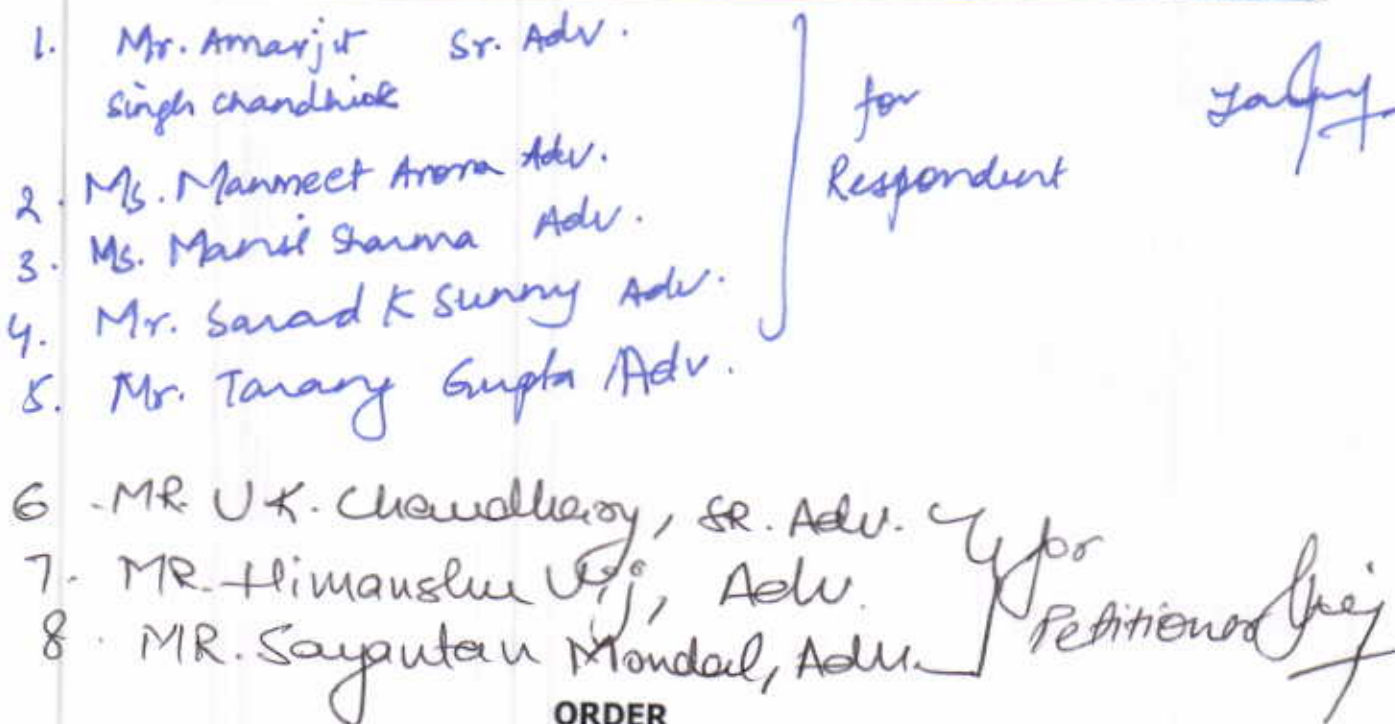 1. Mr. Amarjit Sr. Adv.
Singh Chandhiok
for
Respondent
2. Ms. Manmeet Arora Adv.
3. Ms. Sharma Adv.
4. Mr. Sarad K Sunny Adv.
5. Mr. Tarang Gupta Adv.
6. MR. U.K. Chaudhary, SR. Adv.
7. MR. Himanshu Vij, Adv.
8. MR. Sayantan Mondal, Adv.
for
Petitioner Vij
ORDER